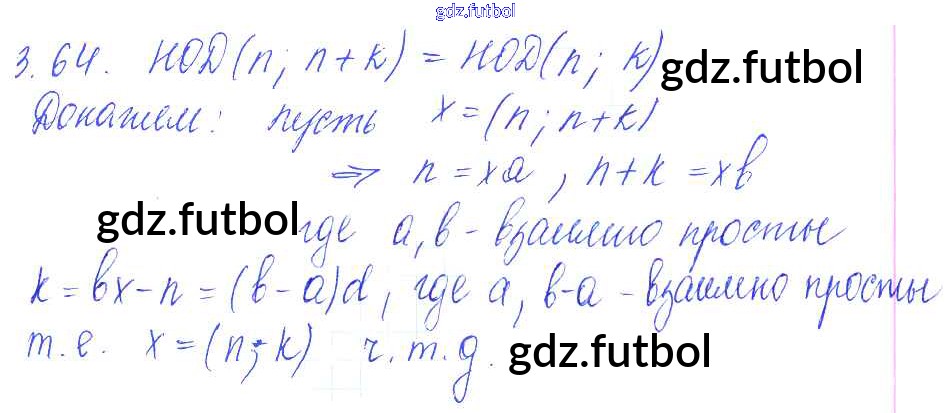 gdz.futbol
3.64. НОД(n; n+k) = НОД(n; k) gdz.futbol
Докажем: пусть x=(n; n+k)
⇒ n=xa, n+k=xb
gdz.futbol где a, b - взаимно просты
k=bx-n=(b-a)d, где a, b-a - взаимно просты
т.е. x=(n; k) ч.т.д. gdz.futbol